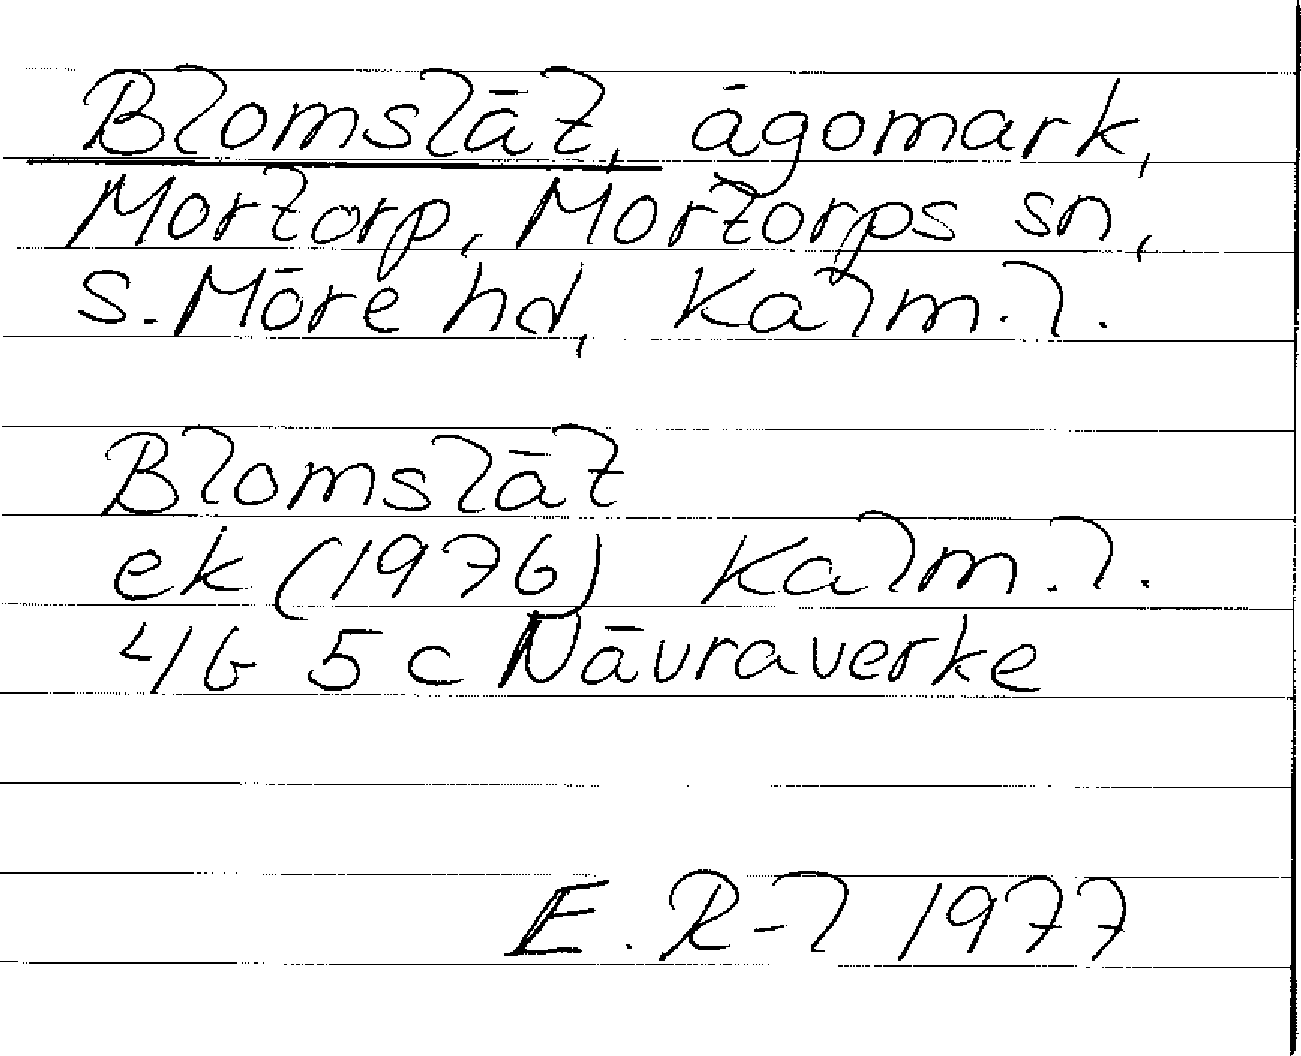 Blomslät, ägomark,
Mortorp, Mortorps sn,
S. Möre hd, Kalm. l.
Blomslät
ek (1976) Kalm. l.
4G 5c Nävraverke
E. R-l 1977